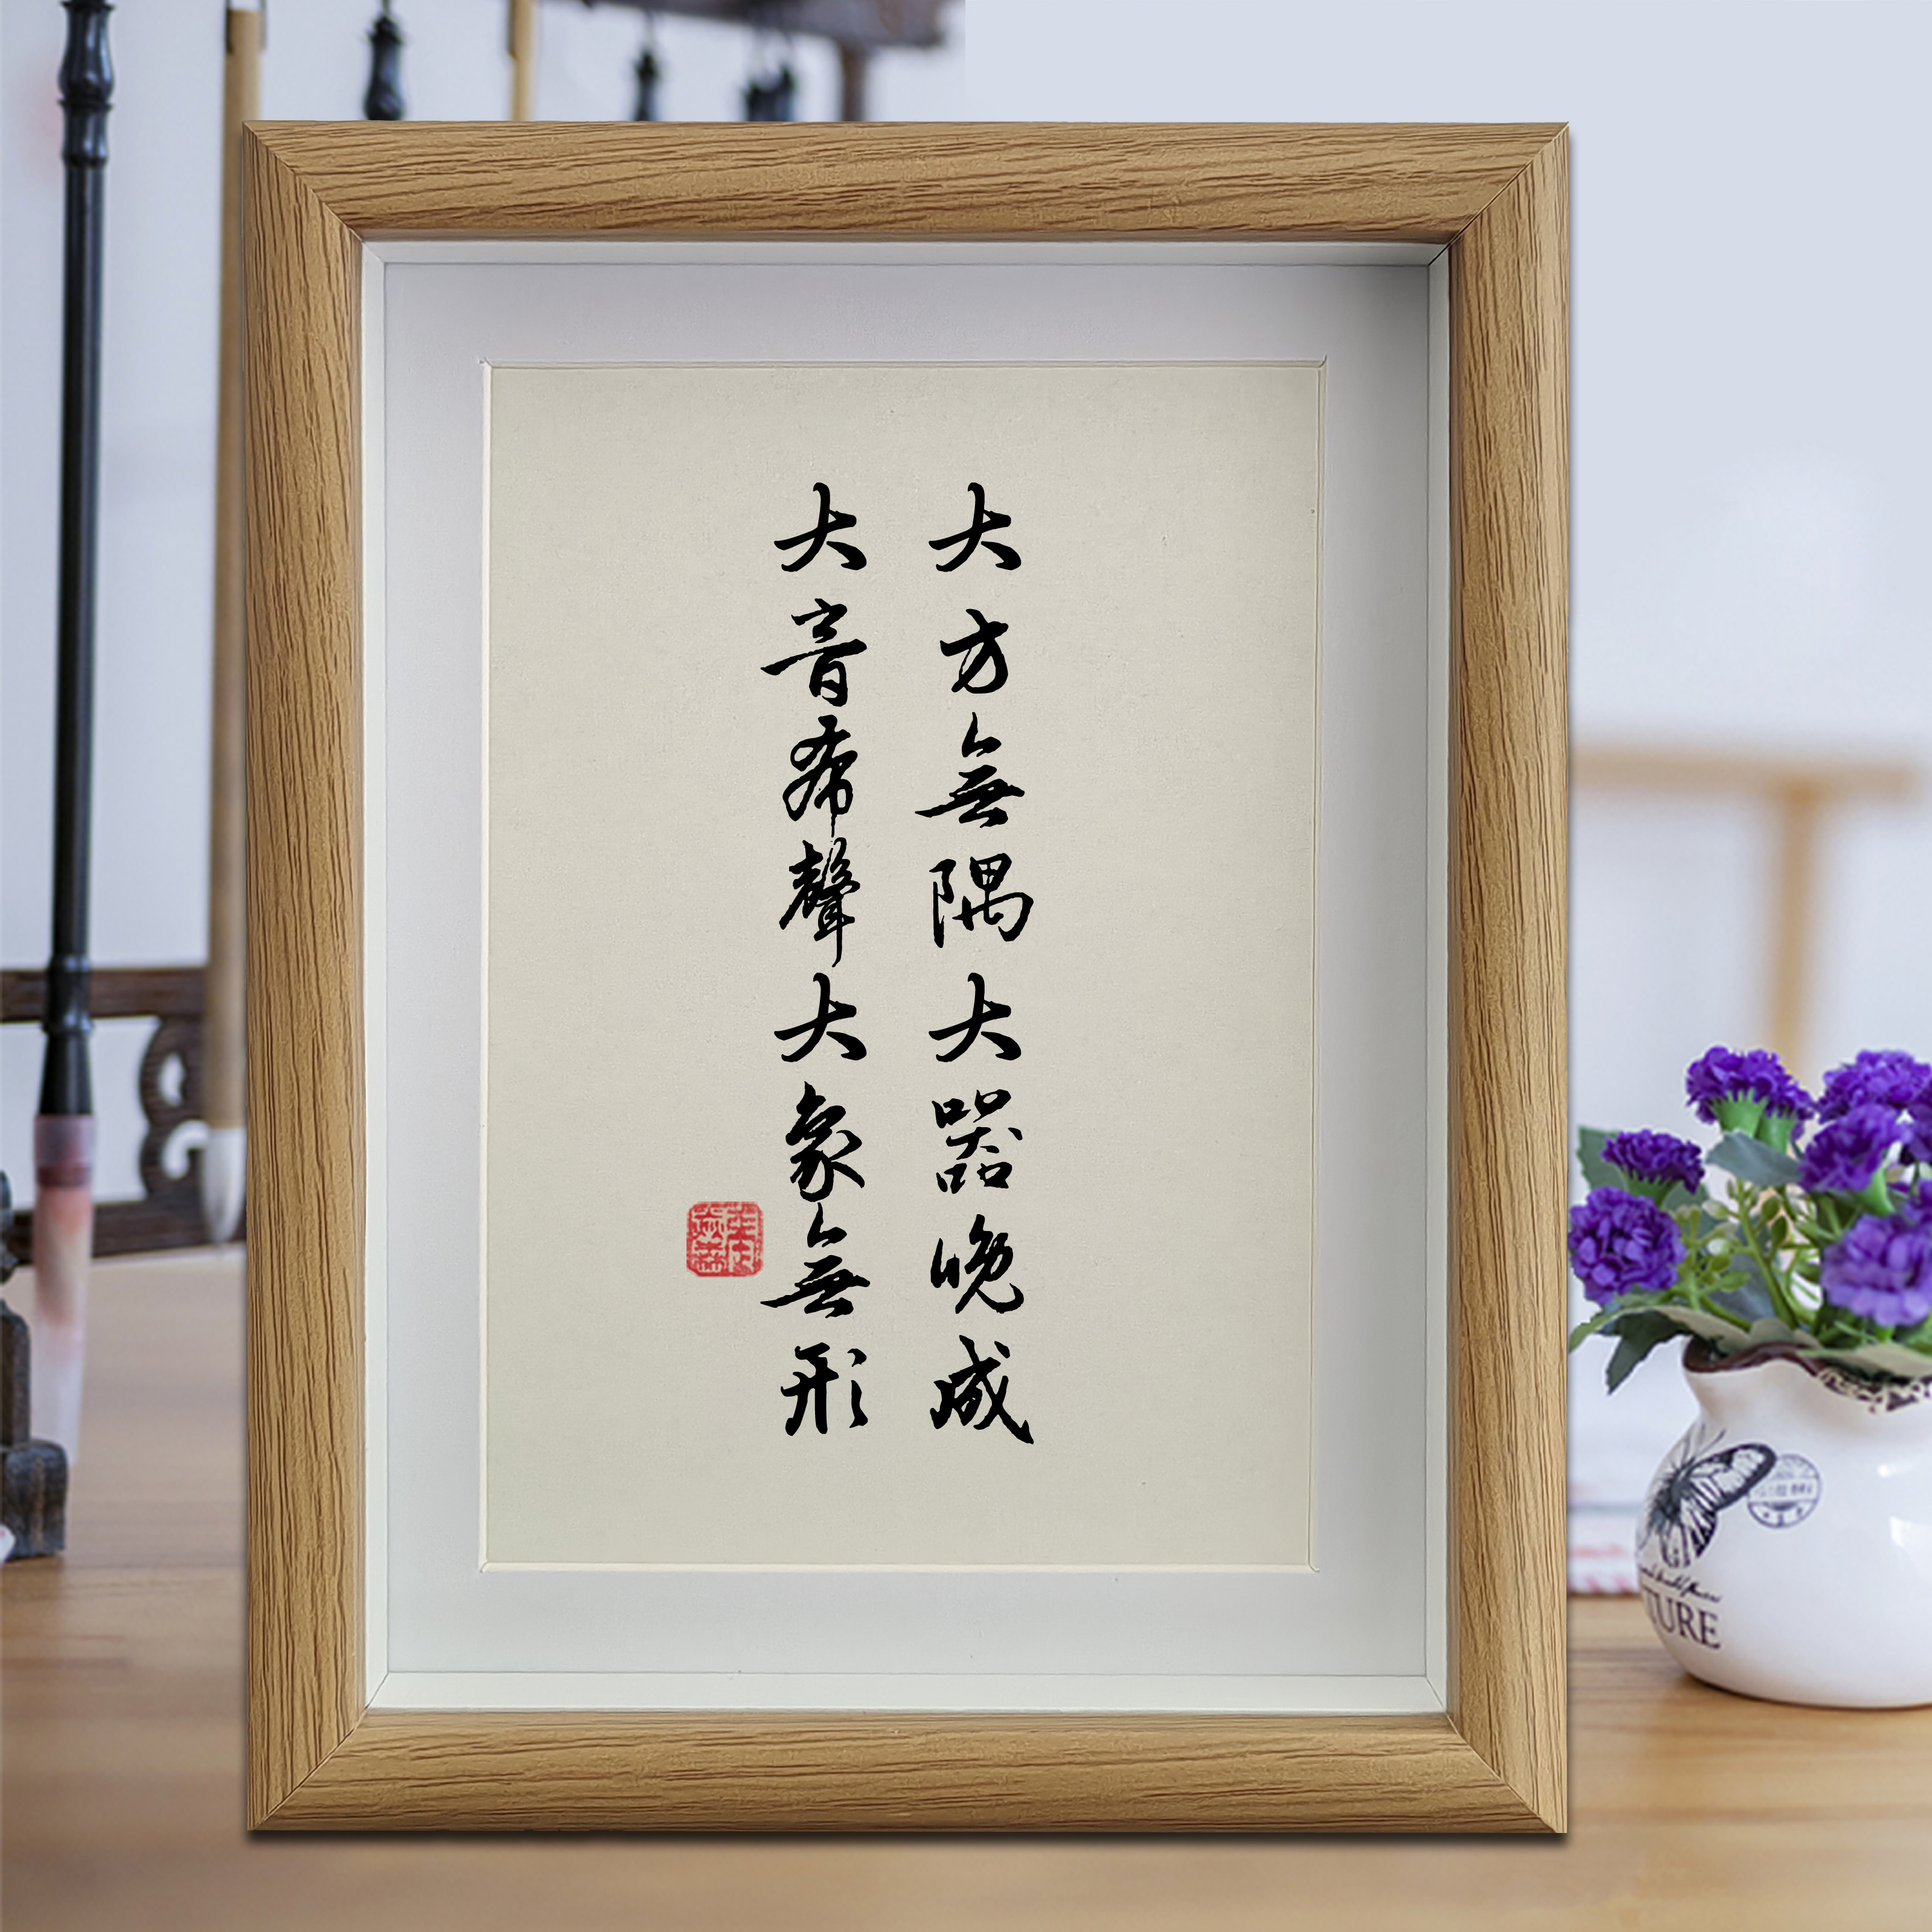 大方無隅大器晚成
大音希聲大象無形
TURE